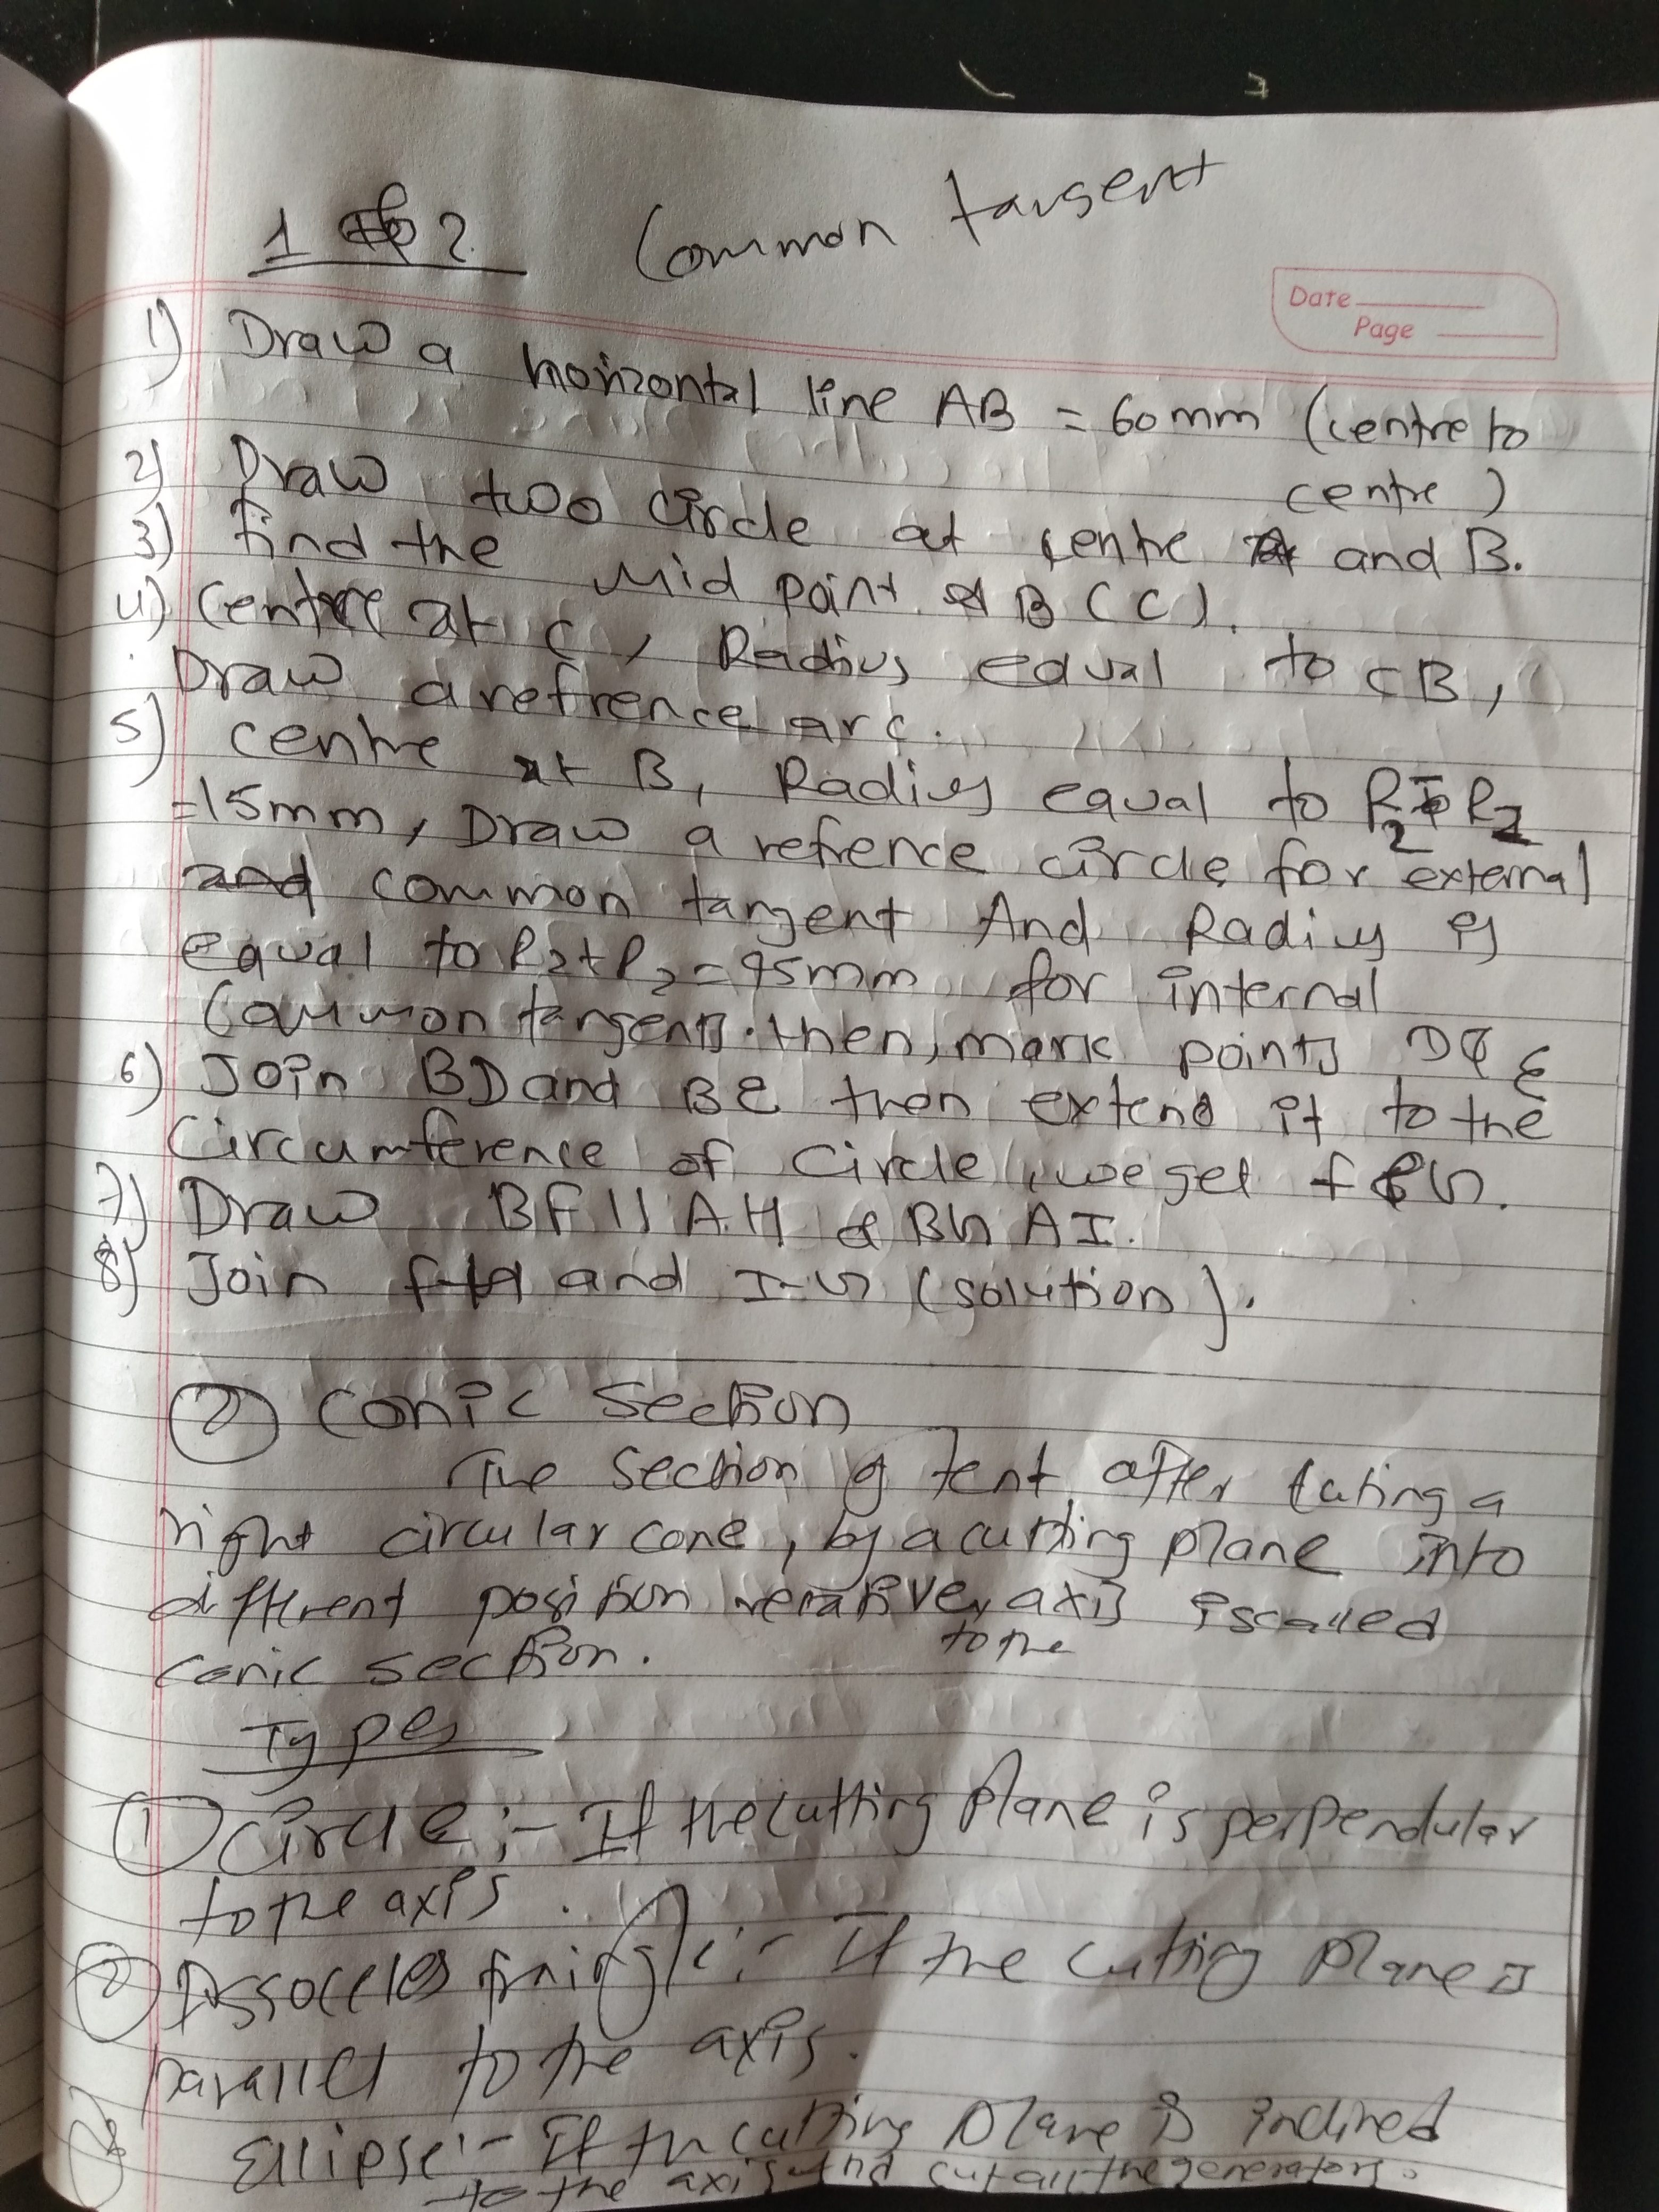 1 2. Common tangent
Date
Page
1) Draw a horizontal line AB = 60mm (centre to
centre)
2) Draw two circle at centre A and B.
3) Find the Mid point AB (C).
4) Centre at C, Radius equal to CB,
Draw a refrence arc.
5) centre at B, Radius equal to R2 - R1
=15mm, Draw a refrence circle for external
and common tangent And Radius is
equal to R2+R1=45mm for internal
Common tangents. then, mark points D & E
6) Join BD and BE then extend it to the
Circumference of Circle, we get f & G.
7) Draw BF || AH & BG AI.
8) Join f-H and I-G (solution).
2 Conic Section
The section after cuting a
right circular cone, by a cutting plane into
different position relative, axis is called
to the
conic section.
Types
1 Circle:- If the cutting Plane is perpendular
to the axis.
2 Issoceles :- If the cutting Plane is
parallel to the axis.
3 Ellipse:- If the cutting plane is inclined
to the axis and cut all the generators.